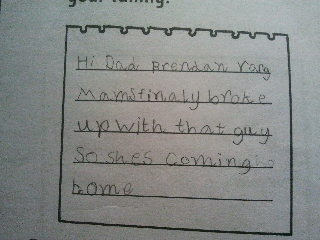 your family.
Hi Dad Brendan rang
Mamsfinaly broke
up with that guy
So shes coming
home